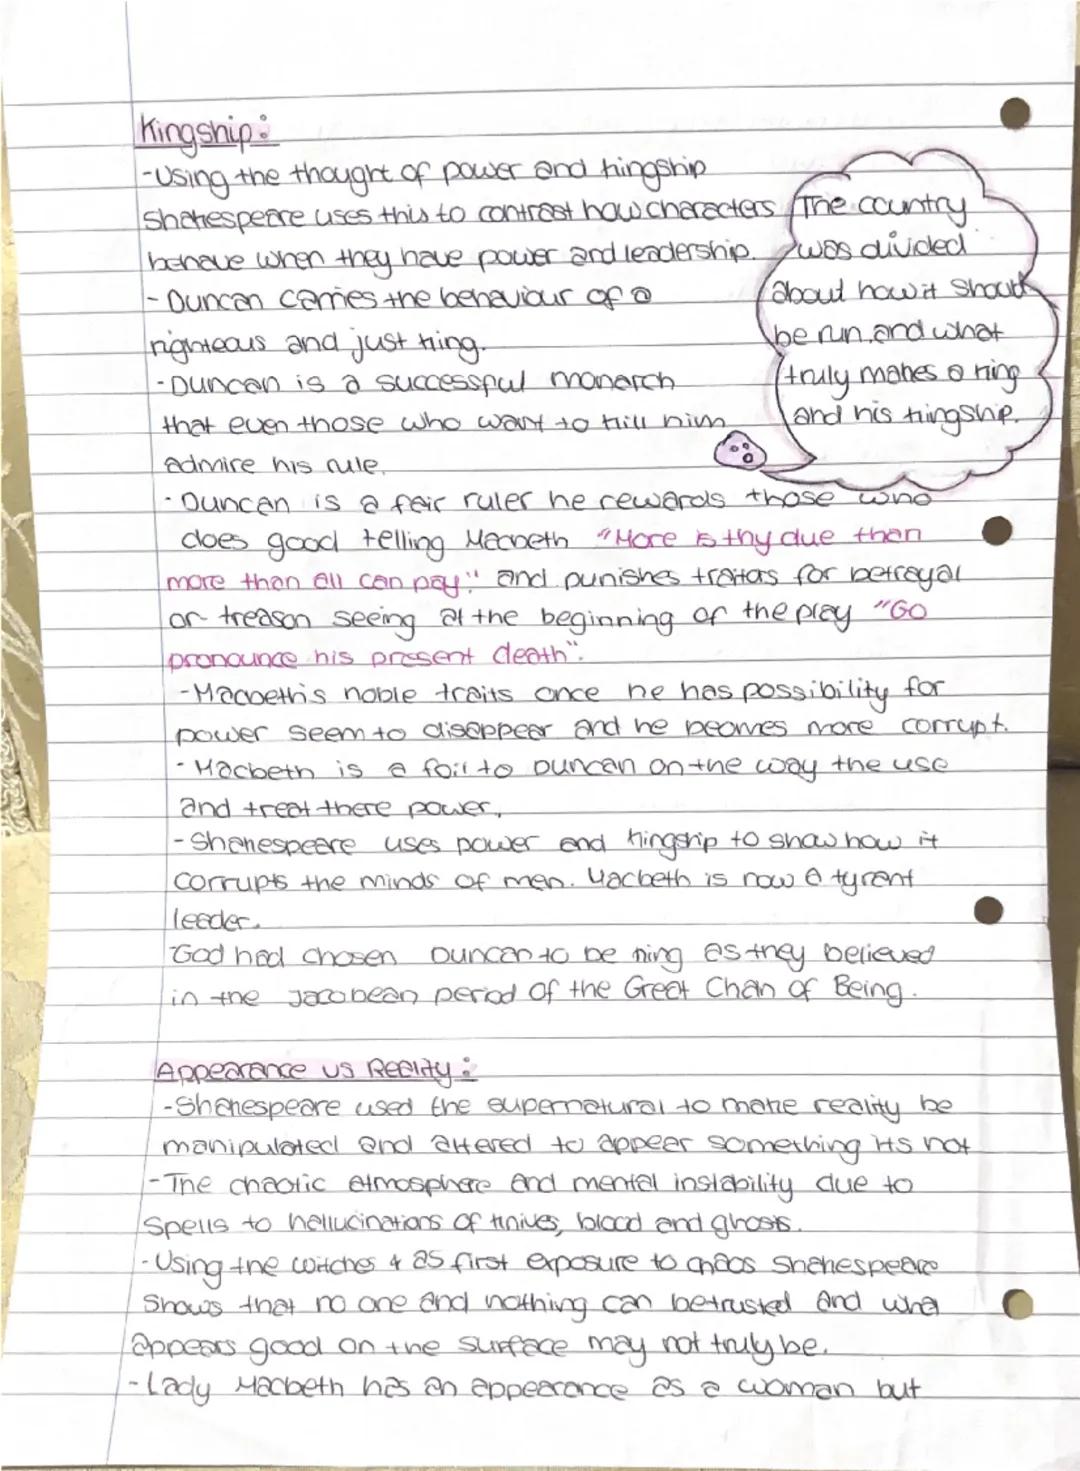 Kingship:
-Using the thought of power and kingship
Shakespeare uses this to contrast how characters
behave when they have power and leadership.
- Duncan carries the behaviour of a
righteous and just king.
-Duncan is a successful monarch
that even those who want to kill him
admire his rule.
The country
was divided
about how it should
be run and what
truly makes a king
and his kingship.
- Duncan is a fair ruler he rewards those who
does good telling Macbeth "More is thy due than
more than all can pay" and punishes traitors for betrayal
or treason seeing at the beginning of the play "Go
pronounce his present death".
-Macbeth's noble traits once he has possibility for
power seem to disappear and he becomes more corrupt.
- Macbeth is a foil to Duncan on the way the use
and treat there power.
-Shakespeare uses power and kingship to show how it
corrupts the minds of men. Macbeth is now a tyrant
leader.
-God had chosen Duncan to be king as they believed
in the Jacobean period of the Great Chan of Being.
Appearance vs Reality:
-Shakespeare used the supernatural to make reality be
manipulated and altered to appear something its not
-The chaotic atmosphere and mental instability due to
spells to hallucinations of knives, blood and ghosts.
-Using the witches & as first exposure to chaos Shakespeare
shows that no one and nothing can be trusted and wha
appears good on the surface may not truly be.
-Lady Macbeth has an appearance as a woman but